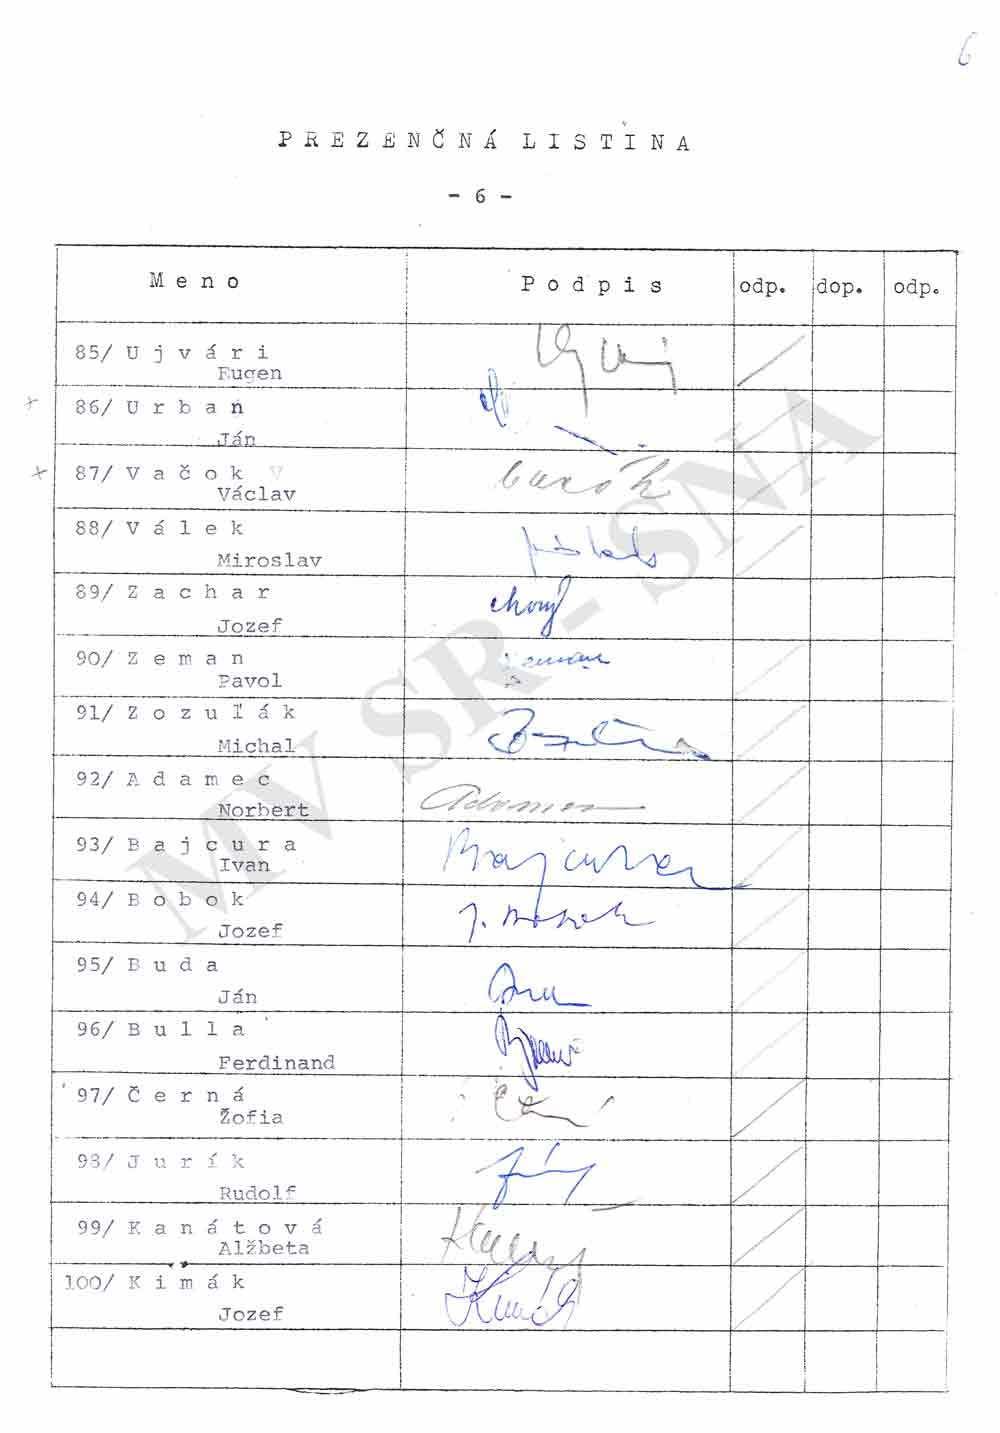 6
PREZENČNÁ LISTINA
- 6 -
Meno Podpis odp. dop. odp.
85/ Ujvári
Eugen
86/ Urban
Ján
87/ Vačok
Václav
88/ Válek
Miroslav
89/ Zachar chorý
Jozef
90/ Zeman Zeman
Pavol
91/ Zozuľák
Michal
92/ Adamec Adamec
Norbert
93/ Bajcura Bajcura
Ivan
94/ Bobok J. Bobok
Jozef
95/ Buda
Ján
96/ Bulla
Ferdinand
97/ Černá
Žofia
98/ Jurík
Rudolf
99/ Kanátová
Alžbeta
100/ Kimák Kimák
Jozef
MV SR - SNA